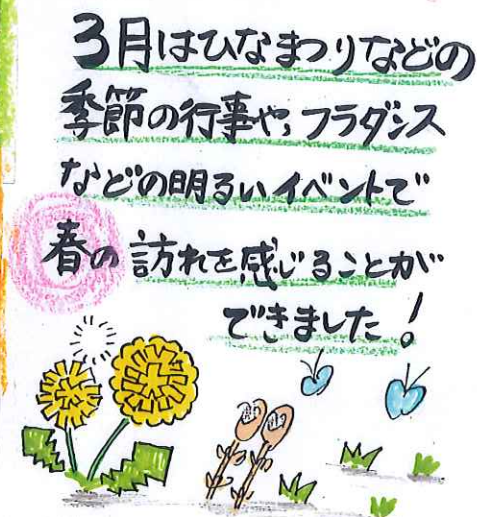 3月はひなまつりなどの
季節の行事や、フラダンス
などの明るいイベントで
春の訪れを感じることが
できました!